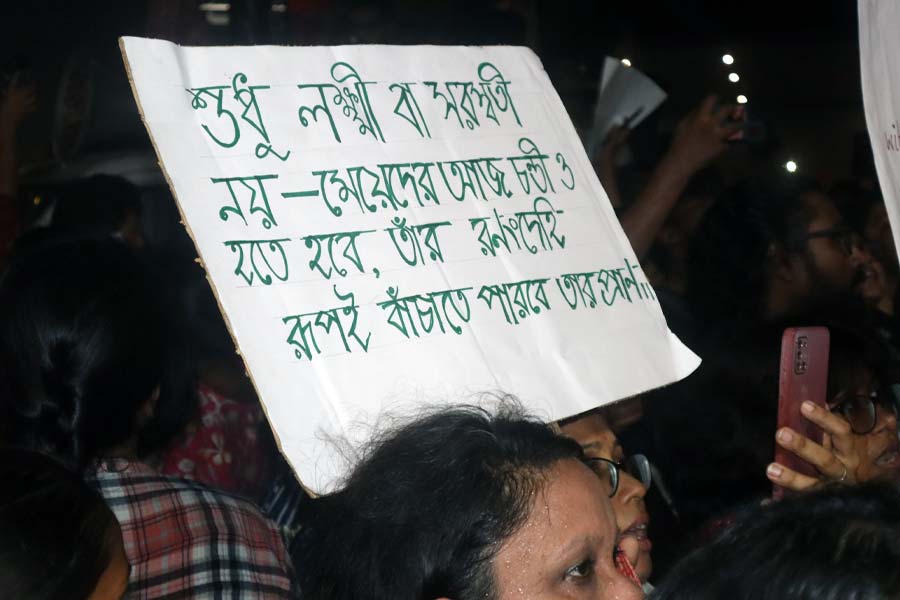 শুধু লক্ষ্মী বা সরস্বতী
নয় – মেয়েদের আজ চন্ডী ও
হতে হবে, তাঁর রনংদেহি
রূপই বাঁচাতে পারবে তার প্রাণ..